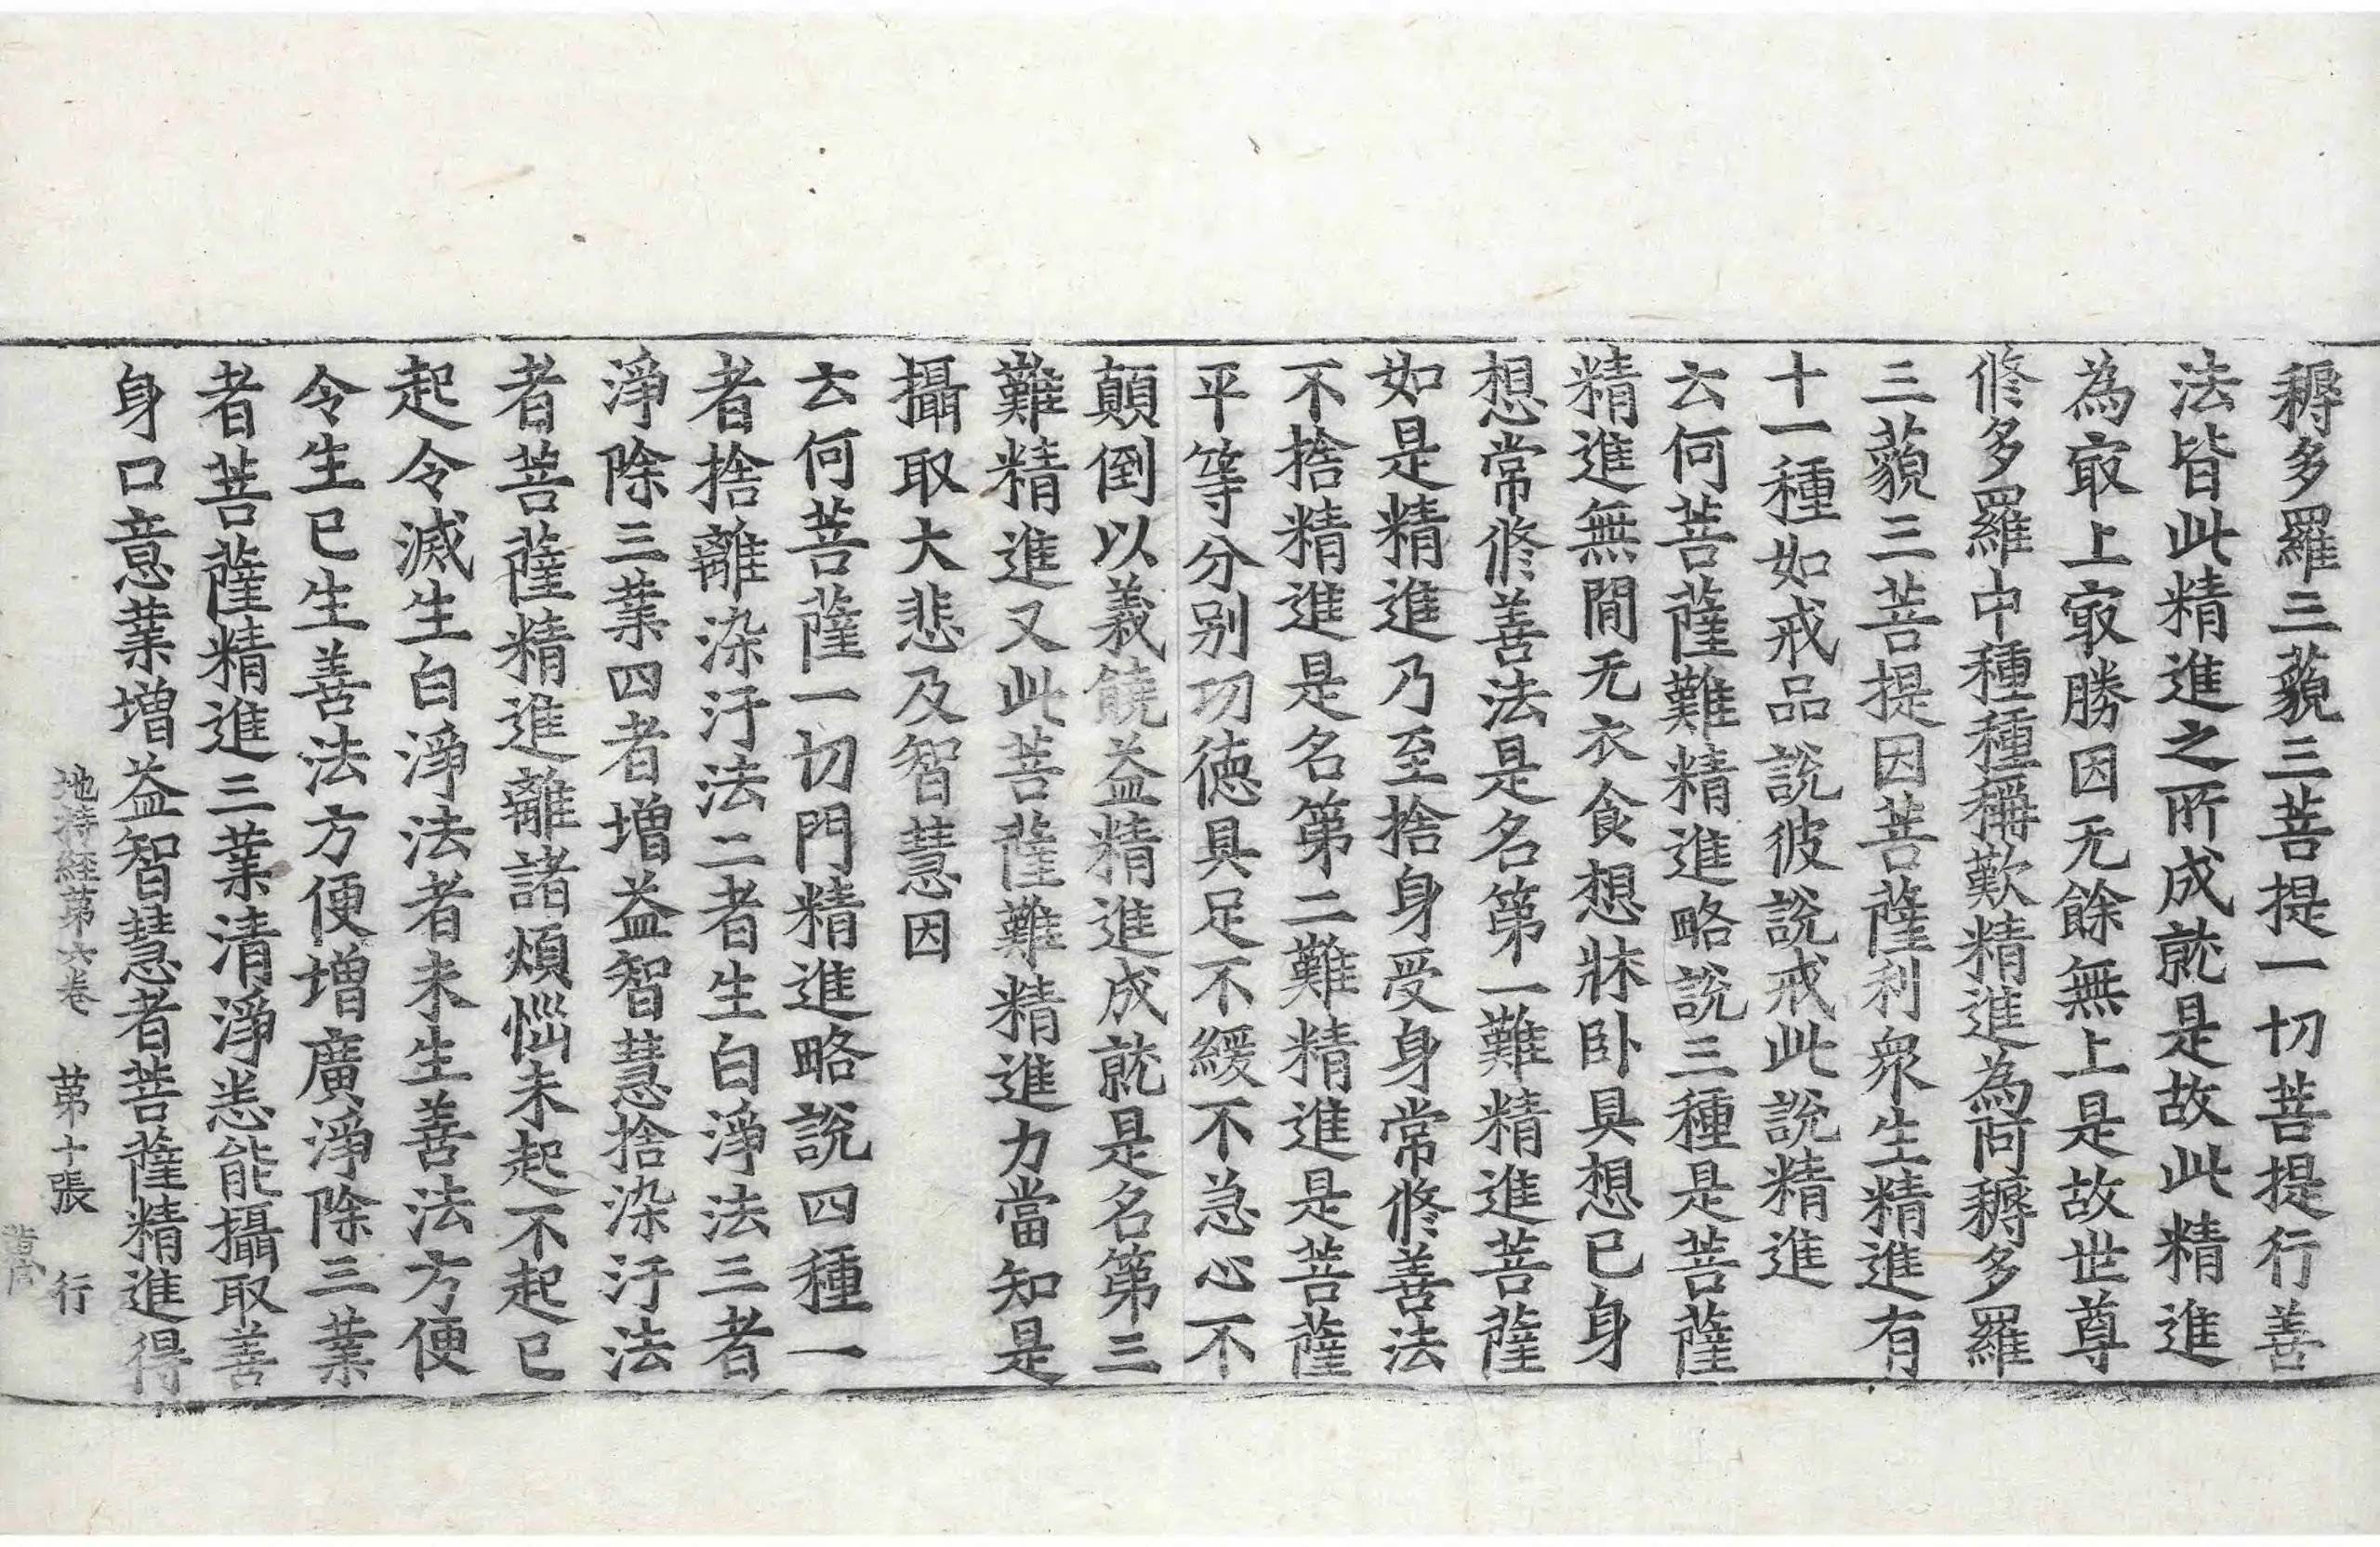 耨多羅三藐三菩提一切菩提行善
法皆此精進之所成就是故此精進
為㝡上㝡勝因无餘無上是故世尊
修多羅中種種稱歎精進為阿耨多羅
三藐三菩提因菩薩利衆生精進有
十一種如戒品說彼說戒此說精進
云何菩薩難精進略說三種是菩薩
精進無閒无衣食想牀卧具想已身
想常修善法是名第一難精進菩薩
如是精進乃至捨身受身常修善法
不捨精進是名第二難精進是菩薩
平等分别功德具足不緩不急心不
顛倒以義饒益精進成就是名第三
難精進又此菩薩難精進力當知是
攝取大悲及智慧因
云何菩薩一切門精進略說四種一
者捨離染汙法二者生白淨法三者
淨除三業四者增益智慧捨染汙法
者菩薩精進離諸煩惱未起不起已
起令滅生白淨法者未生善法方便
令生已生善法方便增廣淨除三業
者菩薩精進三業清淨悉能攝取善
身口意業增益智慧者菩薩精進得
地持經第六卷 第十張 行